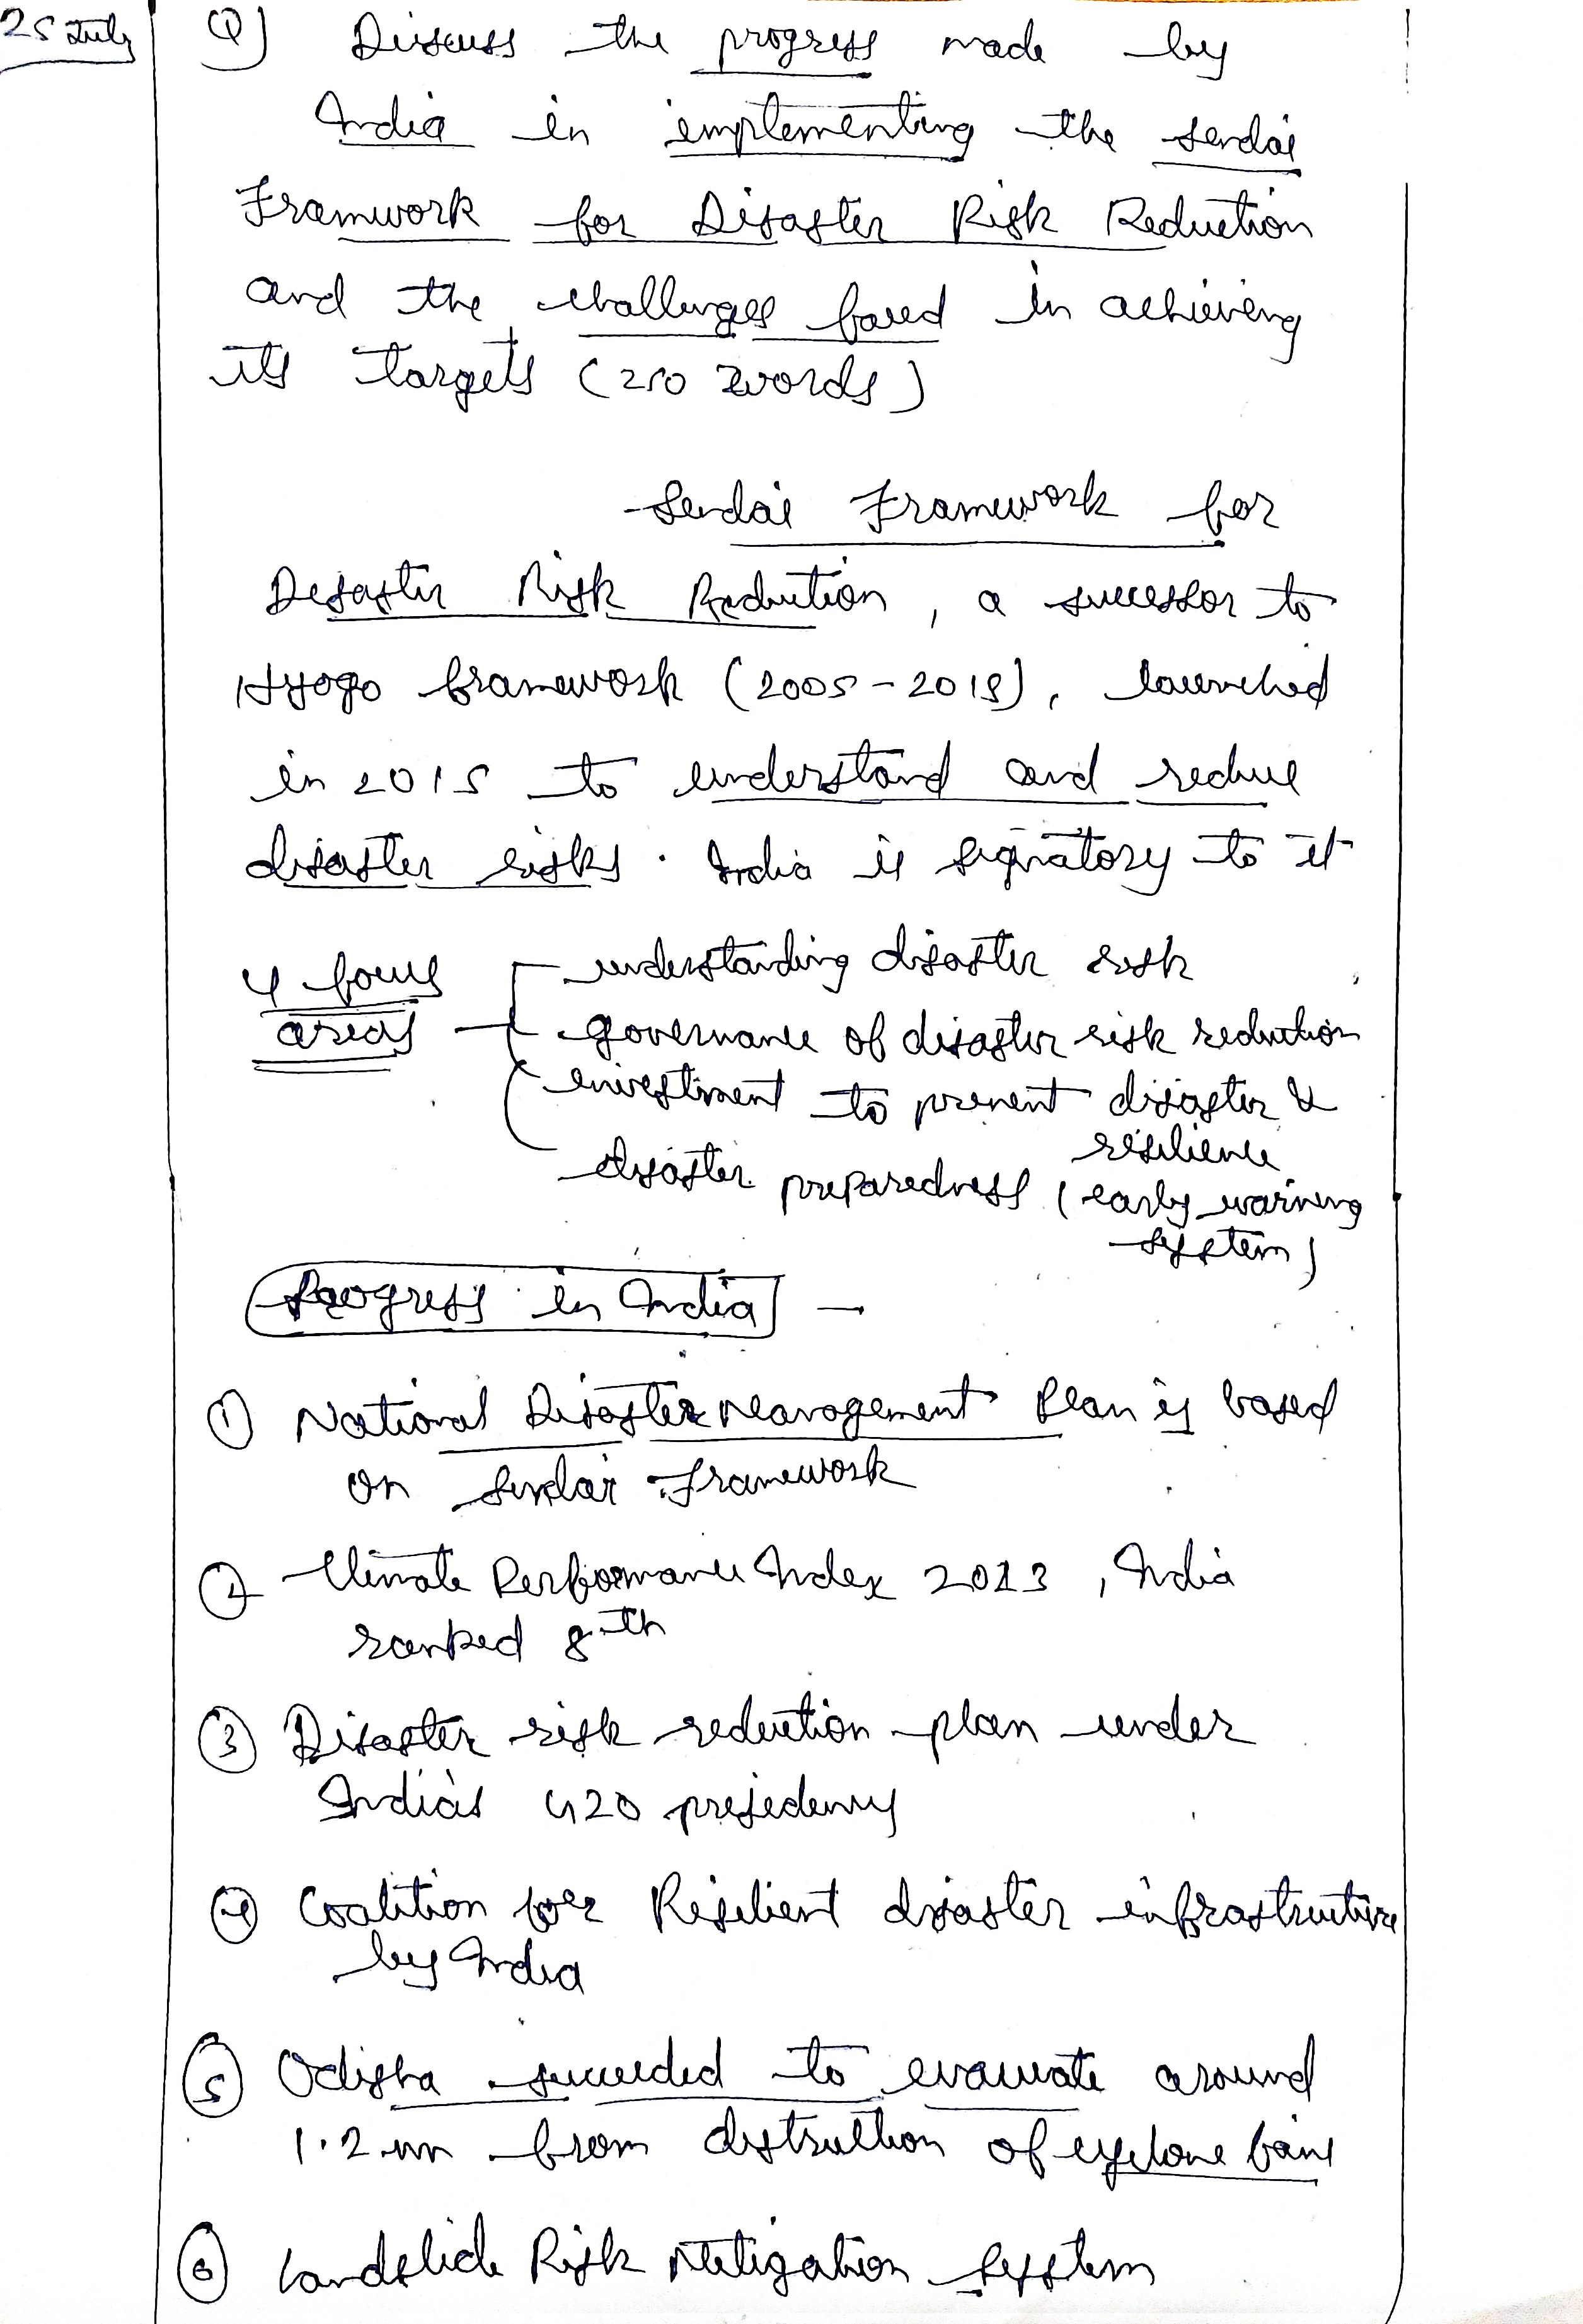 25 July
Q) Discuss the progress made by
India in implementing the Sendai
Framwork for Disaster Risk Reduction
and the challenges faced in achieving
its targets (250 words)
Sendai Framework for
Disaster Risk Reduction, a successor to
Hyogo framework (2005-2015), launched
in 2015 to understand and reduce
disaster risks. India is signatory to it
4 focus areas
understanding disaster risk
governance of disaster risk reduction
investment to prevent disaster &
resilience
disaster preparedness (early warning
system)
Progress in India —
① National Disaster Management Plan is based
on Sendai Framework
② Climate Performance Index 2023, India
ranked 8th
③ Disaster risk reduction plan under
India's G20 presidency
④ Coalition for Resilient disaster infrastructure
by India
⑤ Odisha succeeded to evacuate around
1.2 mn from distruction of cyclone fani
⑥ Landslide Risk Mitigation System